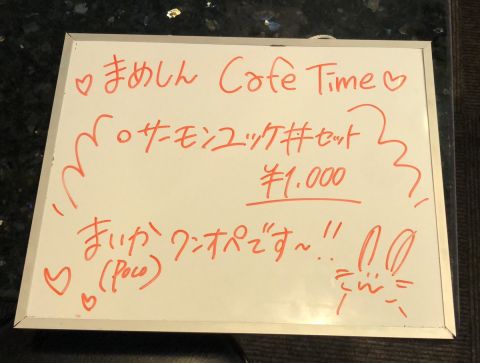 ♡まめしん Cafe Time♡
○サーモンユッケ丼セット
¥1.000
まいか ワンオペです〜!!
(Poco)